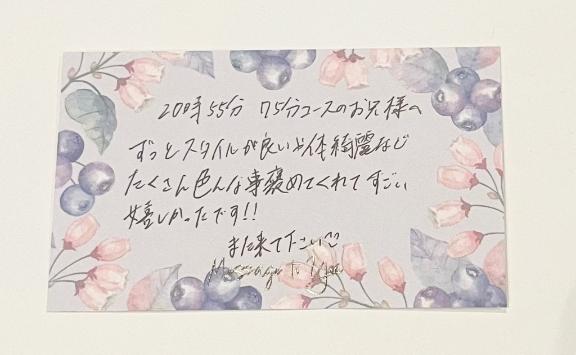 20時55分 75分コースのお兄様へ
ずっとスタイルが良いや体綺麗など
たくさん色んな事褒めてくれてすごい
嬉しかったです!!
また来て下さい♡
Message To You